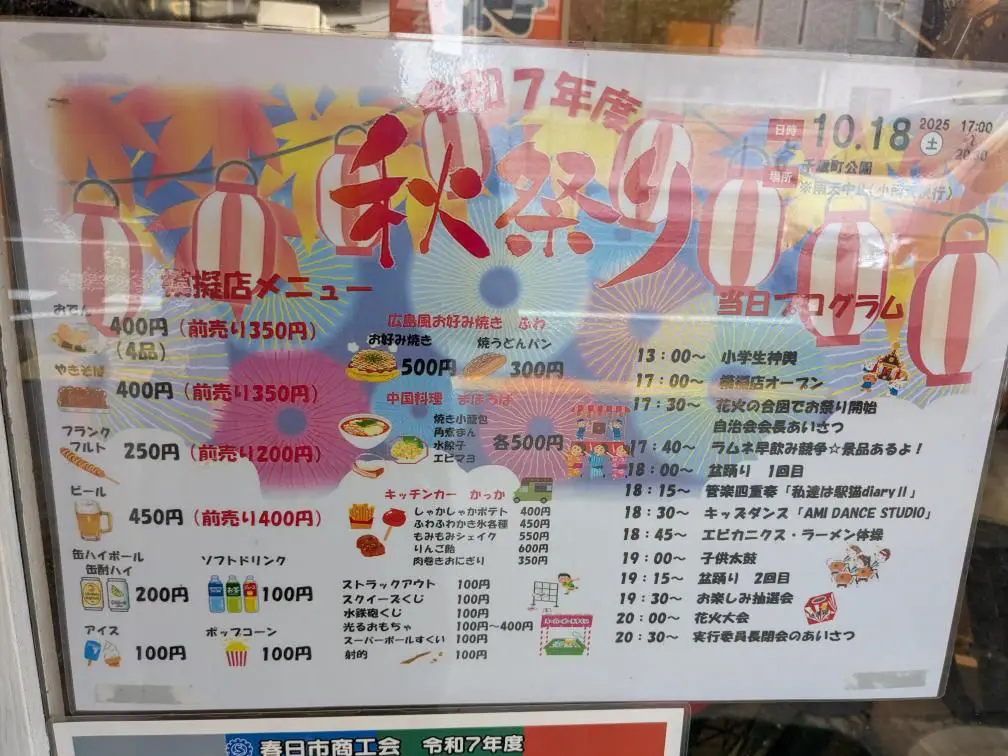 令和7年度
秋祭り
日時 10.18 2025 土 17:00～20:30
場所 千歳町公園
※雨天中止(小雨決行)
模擬店メニュー
おでん 400円(前売り350円)
(4品)
やきそば 400円(前売り350円)
フランクフルト 250円(前売り200円)
ビール 450円(前売り400円)
缶ハイボール
缶酎ハイ 200円
ソフトドリンク 100円
アイス 100円
ポップコーン 100円
広島風お好み焼き ふわ
お好み焼き 500円
焼うどんパン 300円
中国料理 まほろば
焼き小籠包
角煮まん
水餃子
エビマヨ
各500円
キッチンカー かっか
しゃかしゃかポテト 400円
ふわふわかき氷各種 450円
もみもみシェイク 550円
りんご飴 600円
肉巻きおにぎり 350円
ストラックアウト 100円
スクイーズくじ 100円
水鉄砲くじ 100円
光るおもちゃ 100円～400円
スーパーボールすくい 100円
射的 100円
スーパーボールすくい
当日プログラム
13:00～ 小学生神輿
17:00～ 模擬店オープン
17:30～ 花火の合図でお祭り開始
自治会会長あいさつ
17:40～ ラムネ早飲み競争☆景品あるよ!
18:00～ 盆踊り 1回目
18:15～ 管楽四重奏「私達は駅猫diaryⅡ」
18:30～ キッズダンス「AMI DANCE STUDIO」
18:45～ エビカニクス・ラーメン体操
19:00～ 子供太鼓
19:15～ 盆踊り 2回目
19:30～ お楽しみ抽選会
20:00～ 花火大会
20:30～ 実行委員長閉会のあいさつ
春日市商工会 令和7年度